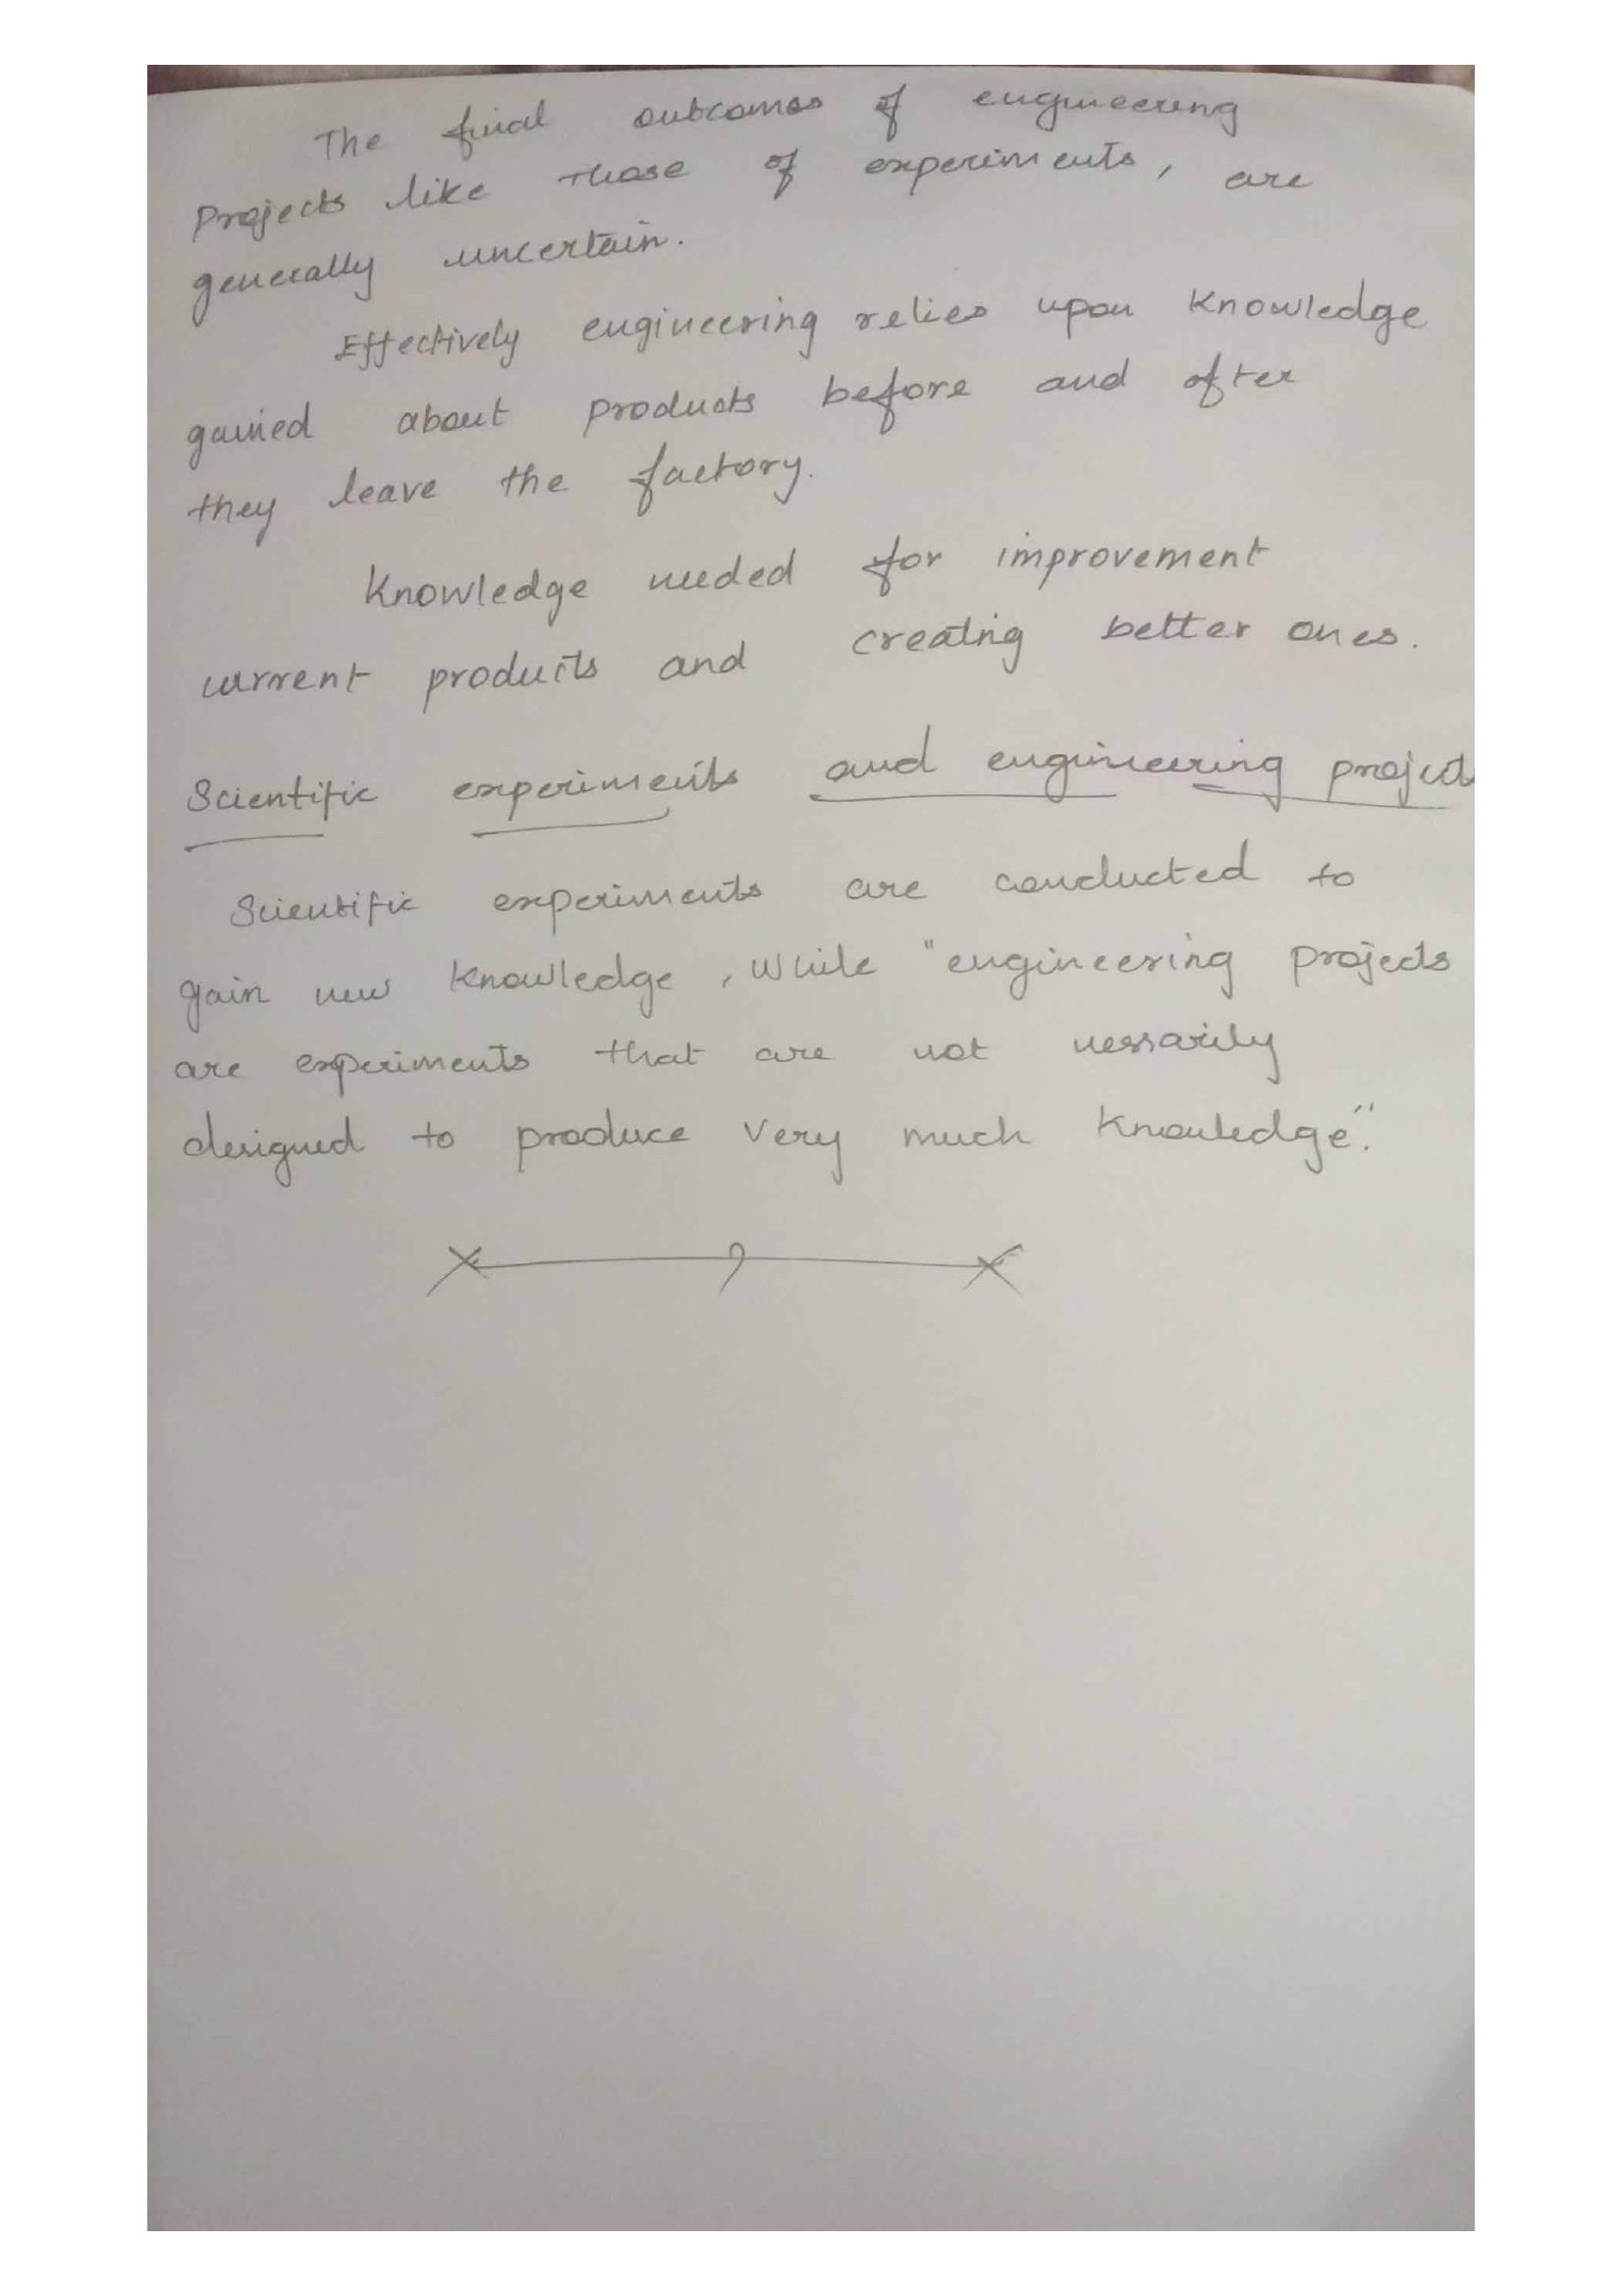 The final outcomes of engineering
Projects like those of experiments, are
generally uncertain.
Effectively engineering relies upon Knowledge
gained about products before and after
they leave the factory.
Knowledge needed for improvement
current products and creating better ones.
Scientific experiments and engineering projects
Scientific experiments are conducted to
gain new Knowledge, While "engineering projects
are experiments that are not nessarily
designed to produce very much Knowledge".